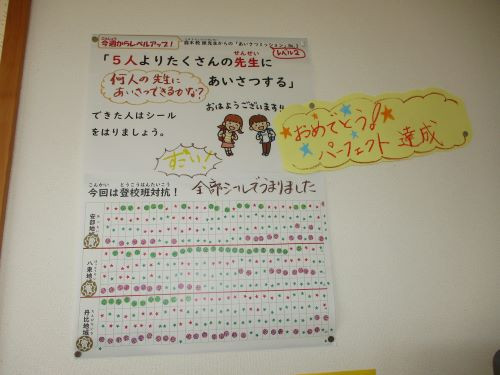 今週からレベルアップ！
校長先生からの「あいさつミッション」No.3
レベル2
「５人よりたくさんの先生に
せんせい
あいさつする」
何人の先生に
あいさつできるかな？
おはようございます!!
できた人はシール
をはりましょう。
すごい！
おめでとう！
パーフェクト 達成
こんかい とうこうはんたいこう
今回は登校班対抗！
全部シールでうまりました
安部地域
八東地域
丹比地域